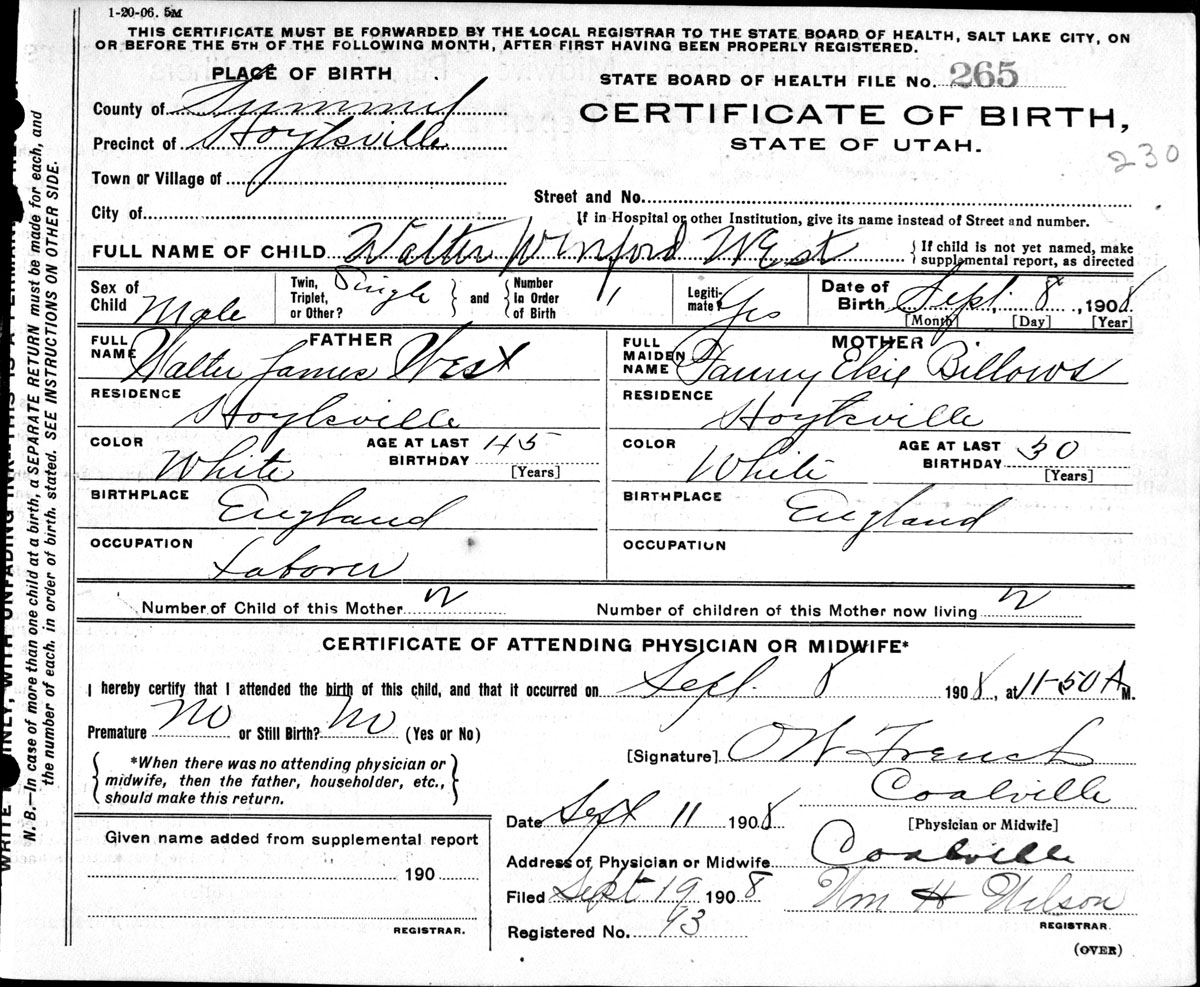 1-20-06. 5M
THIS CERTIFICATE MUST BE FORWARDED BY THE LOCAL REGISTRAR TO THE STATE BOARD OF HEALTH, SALT LAKE CITY, ON
OR BEFORE THE 5TH OF THE FOLLOWING MONTH, AFTER FIRST HAVING BEEN PROPERLY REGISTERED.
PLACE OF BIRTH
STATE BOARD OF HEALTH FILE No. 265
County of Summit
CERTIFICATE OF BIRTH,
Precinct of Hoytsville
STATE OF UTAH.
230
Town or Village of
Street and No.
City of
If in Hospital or other Institution, give its name instead of Street and number.
FULL NAME OF CHILD Walter Winford West
If child is not yet named, make
supplemental report, as directed
Sex of Child Male
Twin, Triplet, or Other? Single and Number In Order of Birth 1
Legitimate? Yes
Date of Birth Sept. 8, 1908.
[Month] [Day] [Year]
FATHER
MOTHER
FULL NAME Walter James West
FULL MAIDEN NAME Fanny Elsie Billows
RESIDENCE Hoytsville
RESIDENCE Hoytsville
COLOR White
AGE AT LAST BIRTHDAY 45 [Years]
COLOR White
AGE AT LAST BIRTHDAY 30 [Years]
BIRTHPLACE England
BIRTHPLACE England
OCCUPATION Laborer
OCCUPATION
Number of Child of this Mother 2
Number of children of this Mother now living 2
CERTIFICATE OF ATTENDING PHYSICIAN OR MIDWIFE*
I hereby certify that I attended the birth of this child, and that it occurred on Sept. 8 1908, at 11-50 A M.
Premature No or Still Birth? No (Yes or No)
*When there was no attending physician or
midwife, then the father, householder, etc.,
should make this return.
[Signature] O W French
Coalville
[Physician or Midwife]
Date Sept 11 1908
Given name added from supplemental report
190
REGISTRAR.
Address of Physician or Midwife Coalville
Filed Sept 19 1908 Wm H Wilson
REGISTRAR.
Registered No. 93
(OVER)
N. B.—In case of more than one child at a birth, a SEPARATE RETURN must be made for each, and
the number of each, in order of birth, stated. SEE INSTRUCTIONS ON OTHER SIDE.